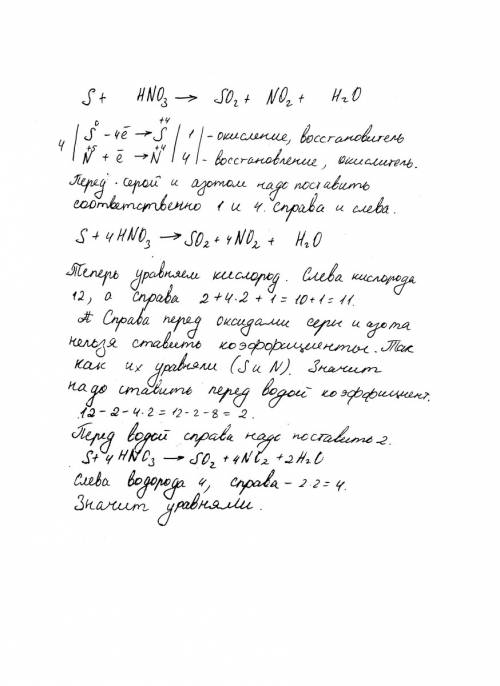 S + HNO₃ → SO₂ + NO₂ + H₂O
4 | S⁰ - 4ē → S⁺⁴ | 1 | - окисление, восстановитель
N⁺⁵ + ē → N⁺⁴ | 4 | - восстановление, окислитель.
Перед серой и азотом надо поставить
соответственно 1 и 4. справа и слева.
S + 4HNO₃ → SO₂ + 4NO₂ + H₂O
Теперь уравняем кислород. Слева кислорода
12, а справа 2 + 4·2 + 1 = 10 + 1 = 11.
Справа перед оксидами серы и азота
нельзя ставить коэффициенты. Так
как их уравняли (S и N). Значит
надо ставить перед водой коэффициент.
12 - 2 - 4·2 = 12 - 2 - 8 = 2.
Перед водой справа надо поставить 2.
S + 4HNO₃ → SO₂ + 4NO₂ + 2H₂O
Слева водорода 4, справа - 2·2 = 4.
Значит уравняли.